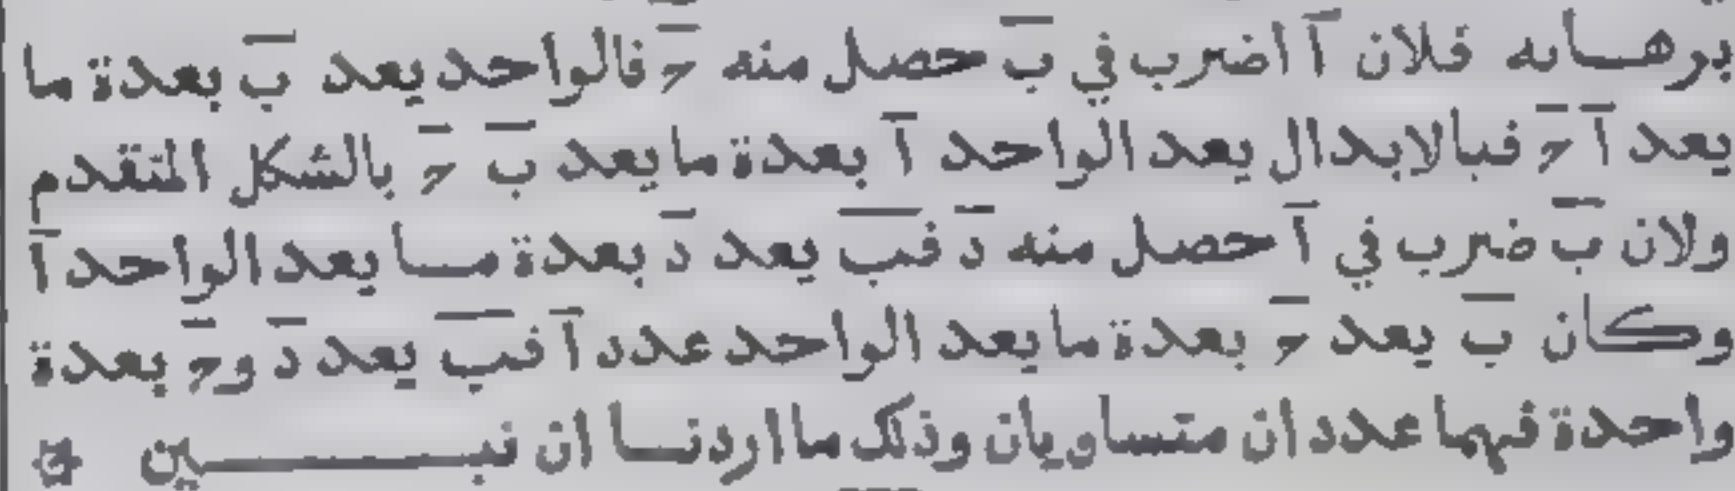 برهانه فلان آ اضرب في ب̅ حصل منه ح̅ فالواحد يعد ب̅ بعدة ما
يعد آ ح̅ فبالابدال يعد الواحد آ بعدة ما يعد ب̅ ح̅ بالشكل المتقدم
ولان ب̅ ضرب في آ حصل منه د̅ فب̅ يعد د̅ بعدة ما يعد الواحد آ
وكان ب̅ يعد ح̅ بعدة ما يعد الواحد عدد آ فب̅ يعد د̅ وح̅ بعدة
واحدة فهما عددان متساويان وذلك ما اردنا ان نبين